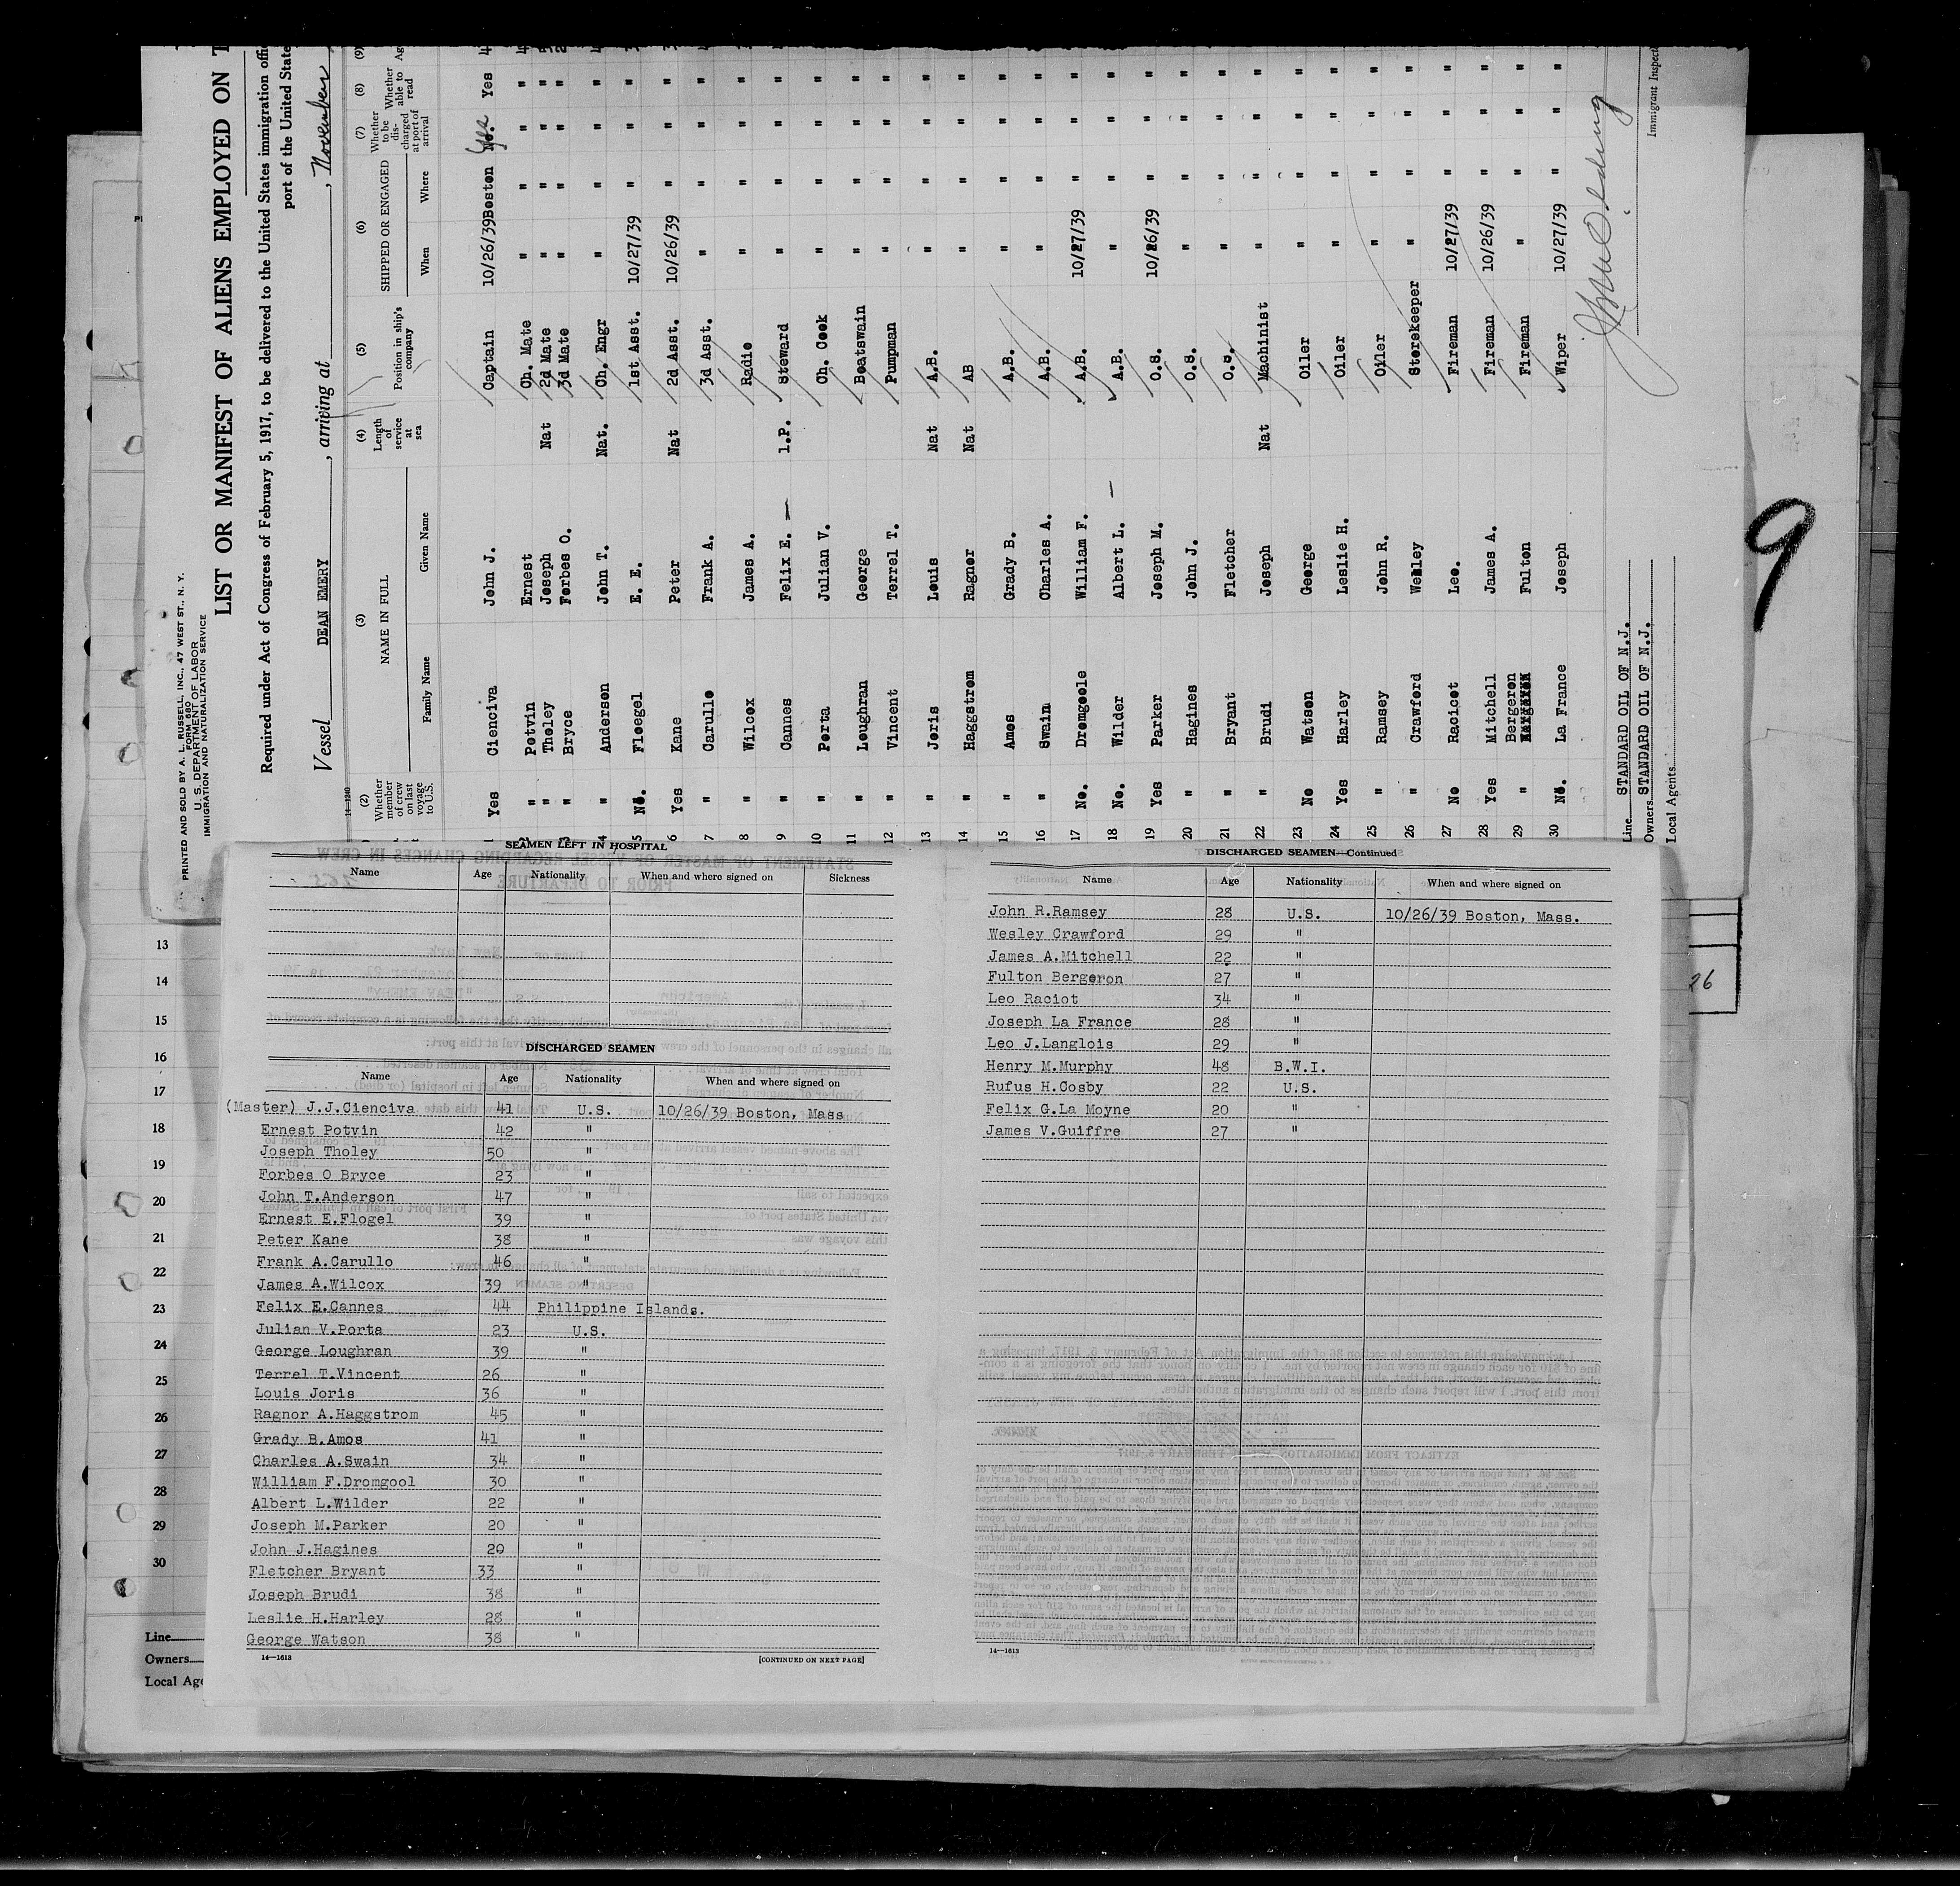 PRINTED AND SOLD BY A. L. RUSSELL, INC., 47 WEST ST., N. Y.
FORM 680
U. S. DEPARTMENT OF LABOR
IMMIGRATION AND NATURALIZATION SERVICE
LIST OR MANIFEST OF ALIENS EMPLOYED ON T
Required under Act of Congress of February 5, 1917, to be delivered to the United States immigration offic
port of the United State
Vessel DEAN EMERY, arriving at, November
14—1240
(2) Whether member of crew on last voyage to U.S. (3) NAME IN FULL Family Name Given Name (4) Length of service at sea (5) Position in ship's company (6) SHIPPED OR ENGAGED When Where (7) Whether to be discharged at port of arrival (8) Whether able to read (9) Ag
1 Yes Cienciva John J. Captain 10/26/39 Boston Yes Yes 4
2 " Potvin Ernest Ch. Mate " " " "
3 " Tholey Joseph Nat 2d Mate " " " "
" Bryce Forbes O. 3d Mate " " " "
4 " Anderson John T. Nat. Ch. Engr " " " "
5 No. Floegel E. E. 1st Asst. 10/27/39 " " "
6 Yes Kane Peter Nat 2d Asst. 10/26/39 " " "
7 " Carullo Frank A. 3d Asst. " " " "
8 " Wilcox James A. Radio " " " "
9 " Cannes Felix E. — 1.P. Steward " " " "
10 " Porta Julian V. Ch. Cook " " " "
11 " Loughran George Boatswain " " " "
12 " Vincent Terrel T. Pumpman " " " "
13 " Joris Louis Nat A.B. " " " "
14 " Haggstrom Ragnor Nat AB " " " "
15 " Amos Grady B. A.B. " " " "
16 " Swain Charles A. A.B. " " " "
17 No. Dromgoole William F. A.B. 10/27/39 " " "
18 No. Wilder Albert L. — A.B. " " " "
19 Yes Parker Joseph M. O.S. 10/26/39 " " "
20 " Hagines John J. O.S. " " " "
21 " Bryant Fletcher O.S. " " " "
22 " Brudi Joseph Nat Machinist " " " "
23 No Watson George Oiler " " " "
24 Yes Harley Leslie H. Oiler " " " "
25 " Ramsey John R. Oiler " " " "
26 " Crawford Wesley Storekeeper " " " "
27 No Racicot Leo. Fireman 10/27/39 " " "
28 Yes Mitchell James A. Fireman 10/26/39 " " "
29 " Bergeron Fulton Fireman " " " "
30 No. La France Joseph Wiper 10/27/39 " " "
Line STANDARD OIL OF N.J.
Owners STANDARD OIL OF N.J.
Local Agents
Immigrant Inspect
9
26
SEAMEN LEFT IN HOSPITAL
Name Age Nationality When and where signed on Sickness
DISCHARGED SEAMEN
Name Age Nationality When and where signed on
(Master) J.J.Cienciva 41 U.S. 10/26/39 Boston, Mass
Ernest Potvin 42 "
Joseph Tholey 50 "
Forbes O Bryce 23 "
John T.Anderson 47 "
Ernest E.Flogel 39 "
Peter Kane 38 "
Frank A.Carullo 46 "
James A.Wilcox 39 "
Felix E.Cannes 44 Philippine Islands.
Julian V.Porta 23 U.S.
George Loughran 39 "
Terrel T.Vincent 26 "
Louis Joris 36 "
Ragnor A.Haggstrom 45 "
Grady B.Amos 41 "
Charles A.Swain 34 "
William F.Dromgool 30 "
Albert L.Wilder 22 "
Joseph M.Parker 20 "
John J.Hagines 20 "
Fletcher Bryant 33 "
Joseph Brudi 38 "
Leslie H.Harley 28 "
George Watson 38 "
14—1613 [CONTINUED ON NEXT PAGE]
DISCHARGED SEAMEN—Continued
Name Age Nationality When and where signed on
John R.Ramsey 28 U.S. 10/26/39 Boston, Mass.
Wesley Crawford 29 "
James A.Mitchell 22 "
Fulton Bergeron 27 "
Leo Raciot 34 "
Joseph La France 28 "
Leo J.Langlois 29 "
Henry M.Murphy 48 B.W.I.
Rufus H.Cosby 22 U.S.
Felix G.La Moyne 20 "
James V.Guiffre 27 "
14—1613
13
14
15
16
17
18
19
20
21
22
23
24
25
26
27
28
29
30
Line
Owners
Local Age